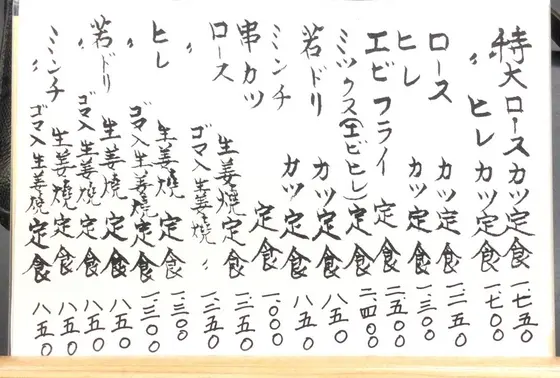 特大ロースカツ定食 一、七五〇
〃 ヒレカツ定食 一、七〇〇
ロース カツ定食 一、二五〇
ヒレ カツ定食 一、三〇〇
エビフライ 定食 二、五〇〇
ミックス(エビヒレ)定食 二、四〇〇
若ドリ カツ定食 八五〇
ミンチ カツ定食 八五〇
串カツ 定食 一、〇〇〇
ロース 生姜焼定食 一、二五〇
〃 ゴマ入生姜焼〃 一、二五〇
ヒレ 生姜焼定食 一、三〇〇
〃 ゴマ入生姜焼定食 一、三〇〇
若ドリ 生姜焼定食 八五〇
〃 ゴマ入生姜焼定食 八五〇
ミンチ 生姜焼定食 八五〇
〃 ゴマ入生姜焼定食 八五〇